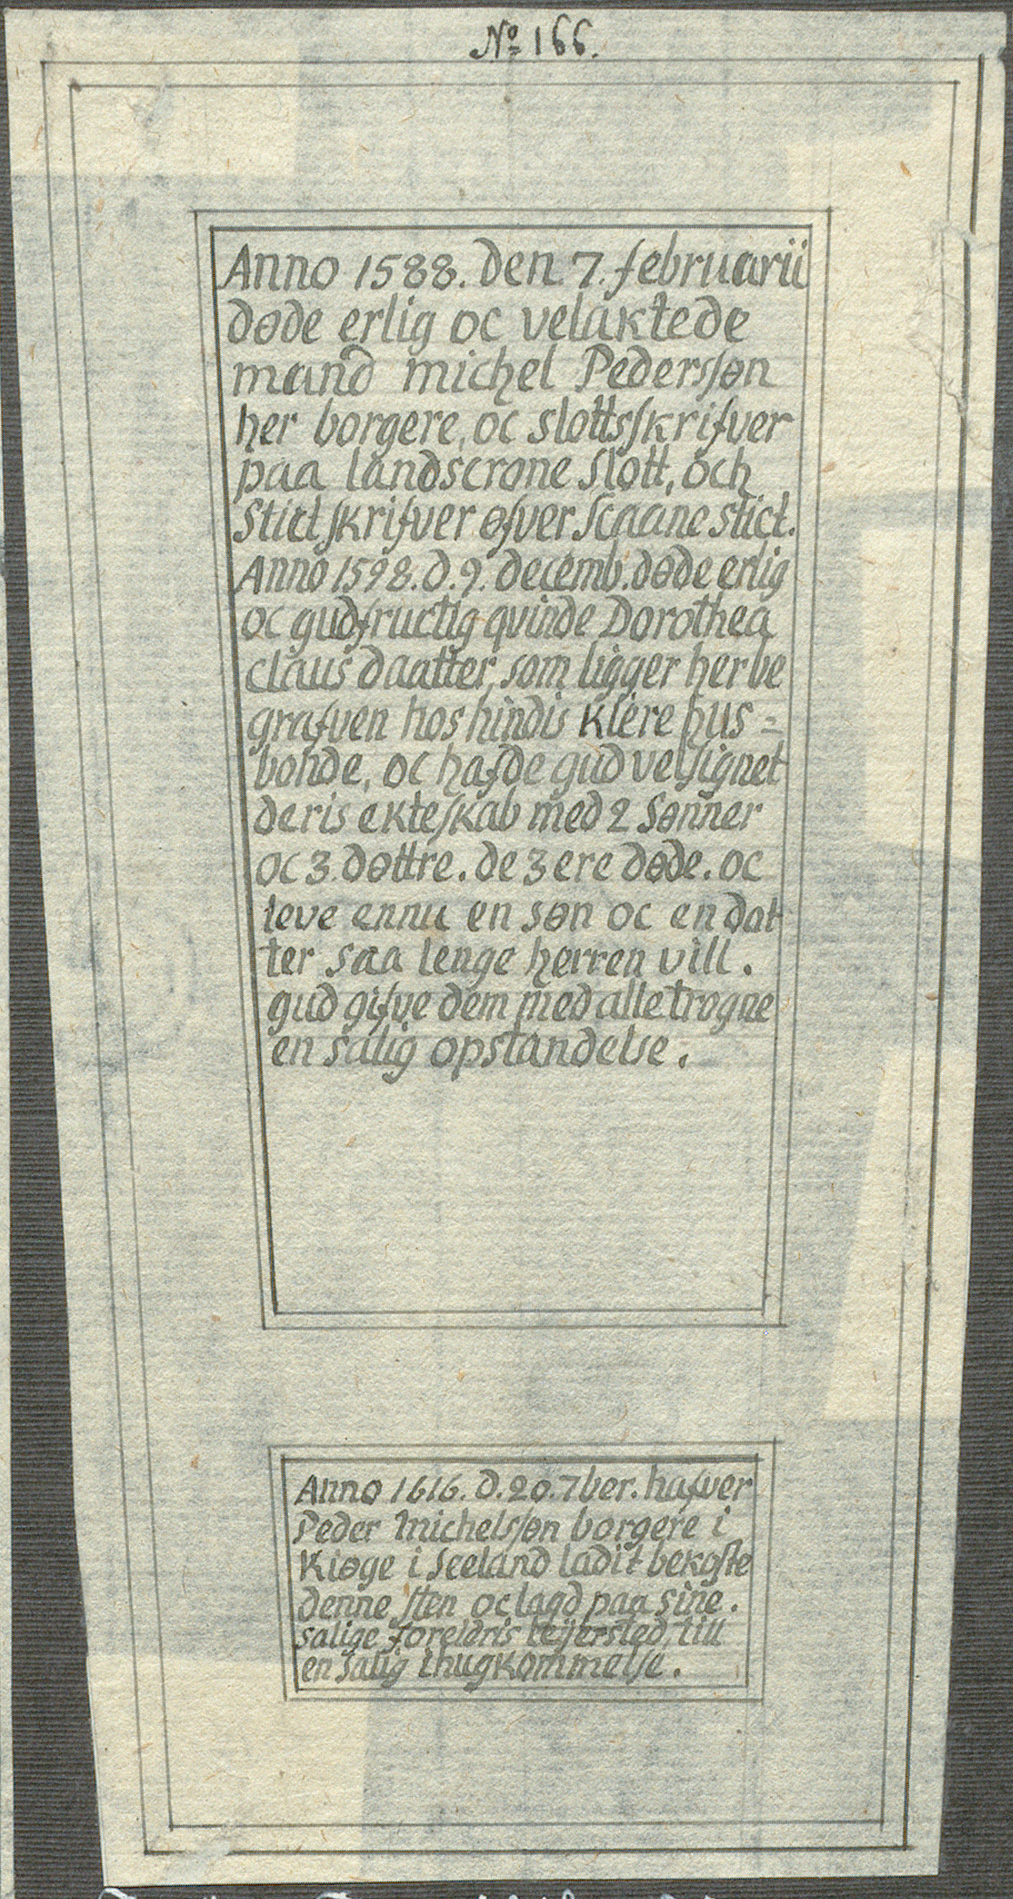 No 166.
Anno 1588. den 7. februarii
døde erlig oc velaktede
mand michel Pederssøn
her borgere, oc slottsskrifver
paa landscrone slott, och
Stictskrifver øfver Scaane stict.
Anno 1598. d. 9. decemb. døde erlig
oc gudfructig qvinde Dorothea
claus daatter, som ligger her be
grafven hos hindis kiere hus=
bonde, oc hafde gud velsignet
deris ekteskab med 2 Sønner
oc 3. døttre. de 3 ere døde. oc
leve ennu en søn oc en dat
ter saa lenge herren vill.
gud gifve dem med alle trogne
en salig opstandelse.
Anno 1616. d. 20. 7ber. hafver
Peder Michelssøn borgere i
Kiøge i Seeland ladit bekoste
denne sten oc lagd paa sine.
salige foreldris leijersted, till
en salig ihugkommelse.